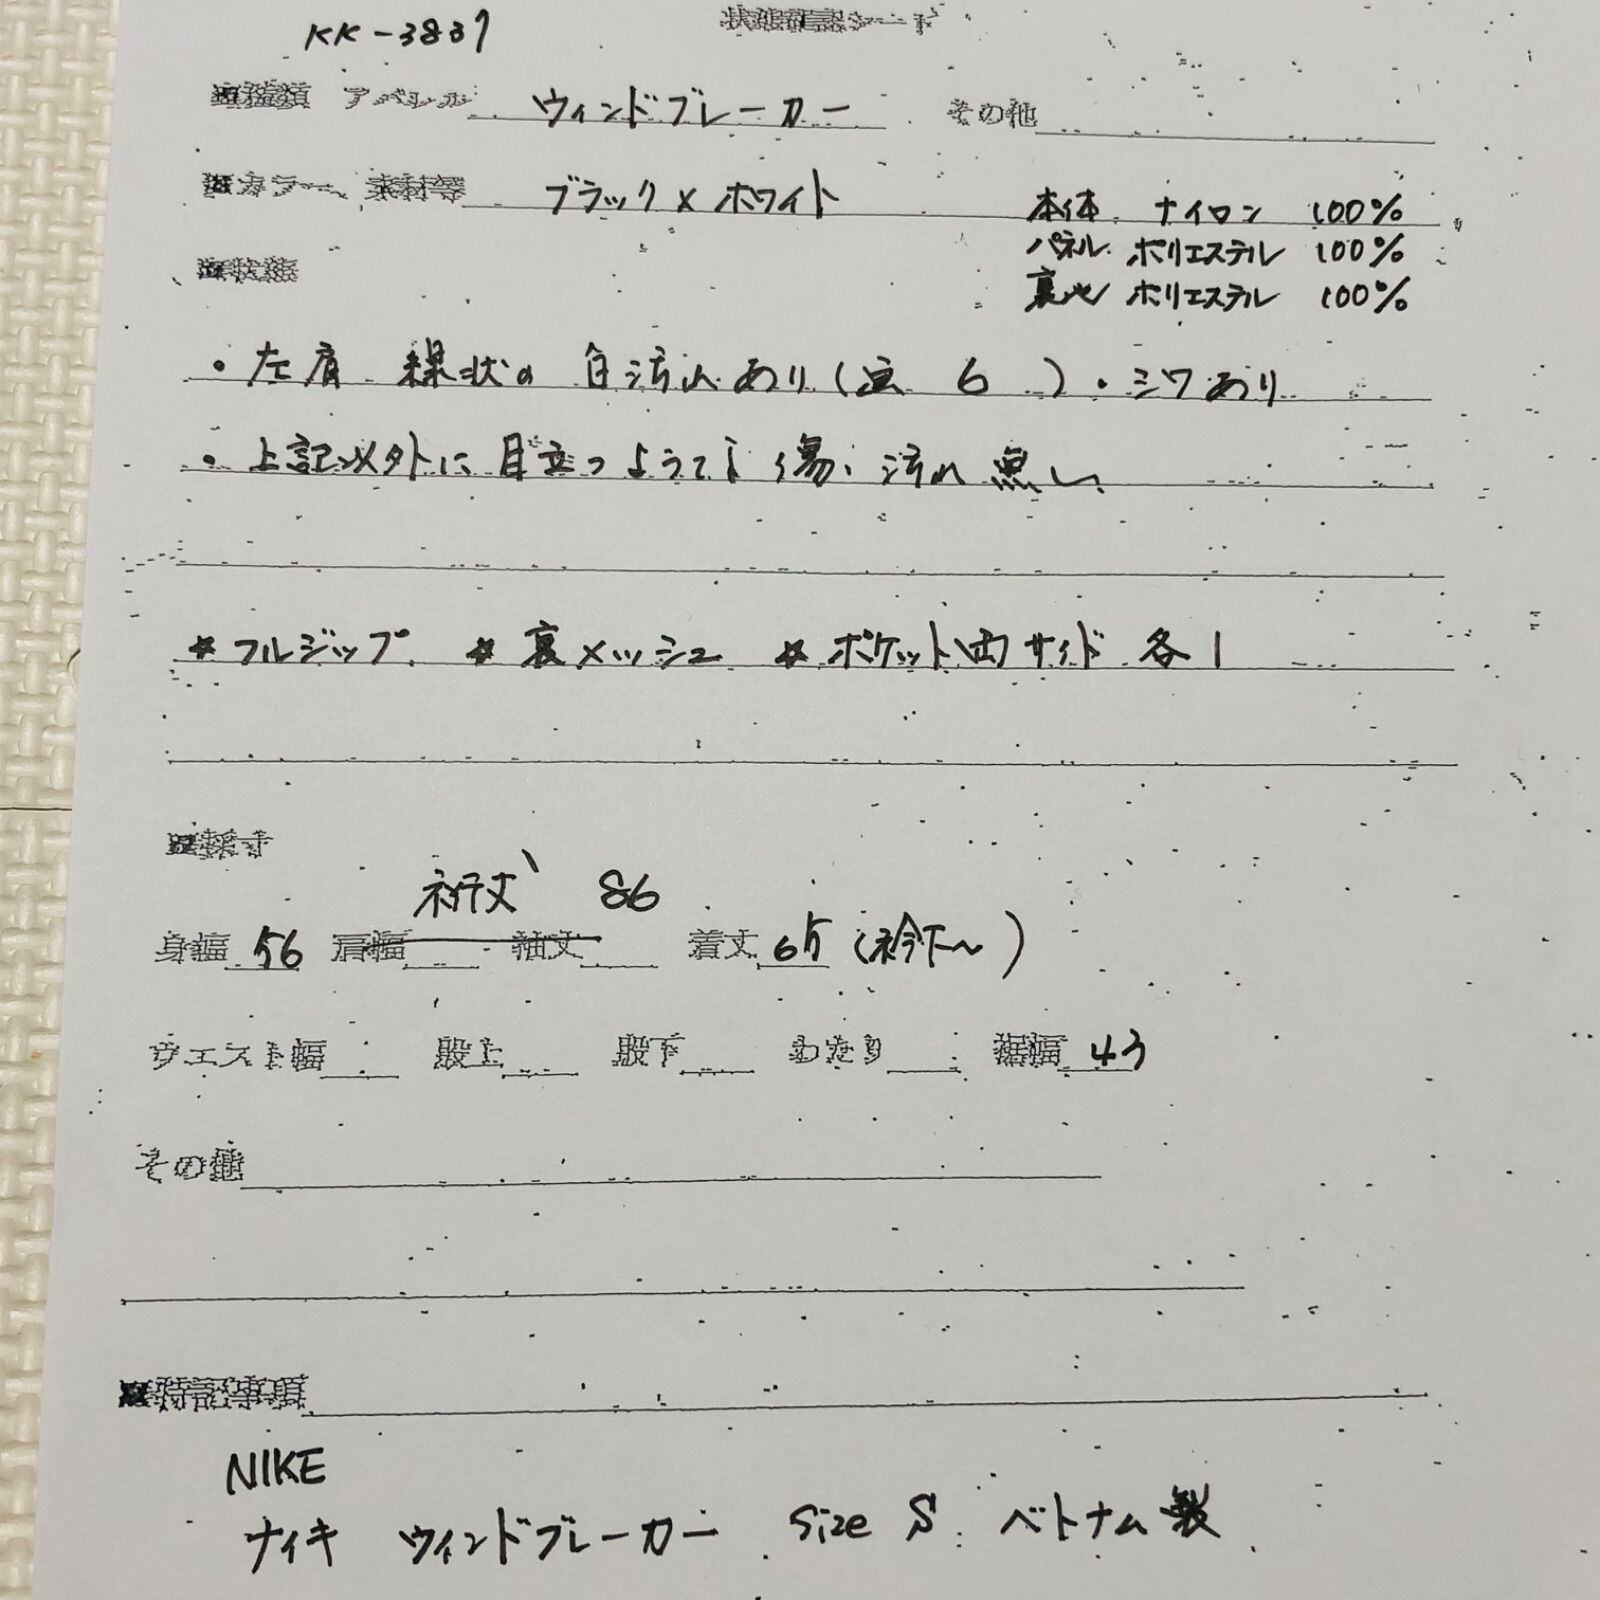 KK-3837
状態確認シート
■種類 アパレル ウィンドブレーカー その他
■カラー、素材等 ブラック×ホワイト 本体 ナイロン 100%
パネル ポリエステル 100%
■状態
裏地 ポリエステル 100%
・左肩 線状の白汚れあり(点 6 )・シワあり
・上記以外に目立つような傷、汚れ無し
☆フルジップ ☆裏メッシュ ☆ポケット両サイド各1
■採寸
裄丈 86
身幅 56 肩幅 袖丈 着丈 65 (衿下〜)
ウエスト幅 股上 股下 わたり 裾幅 43
その他
■特記事項
NIKE
ナイキ ウィンドブレーカー size S ベトナム製